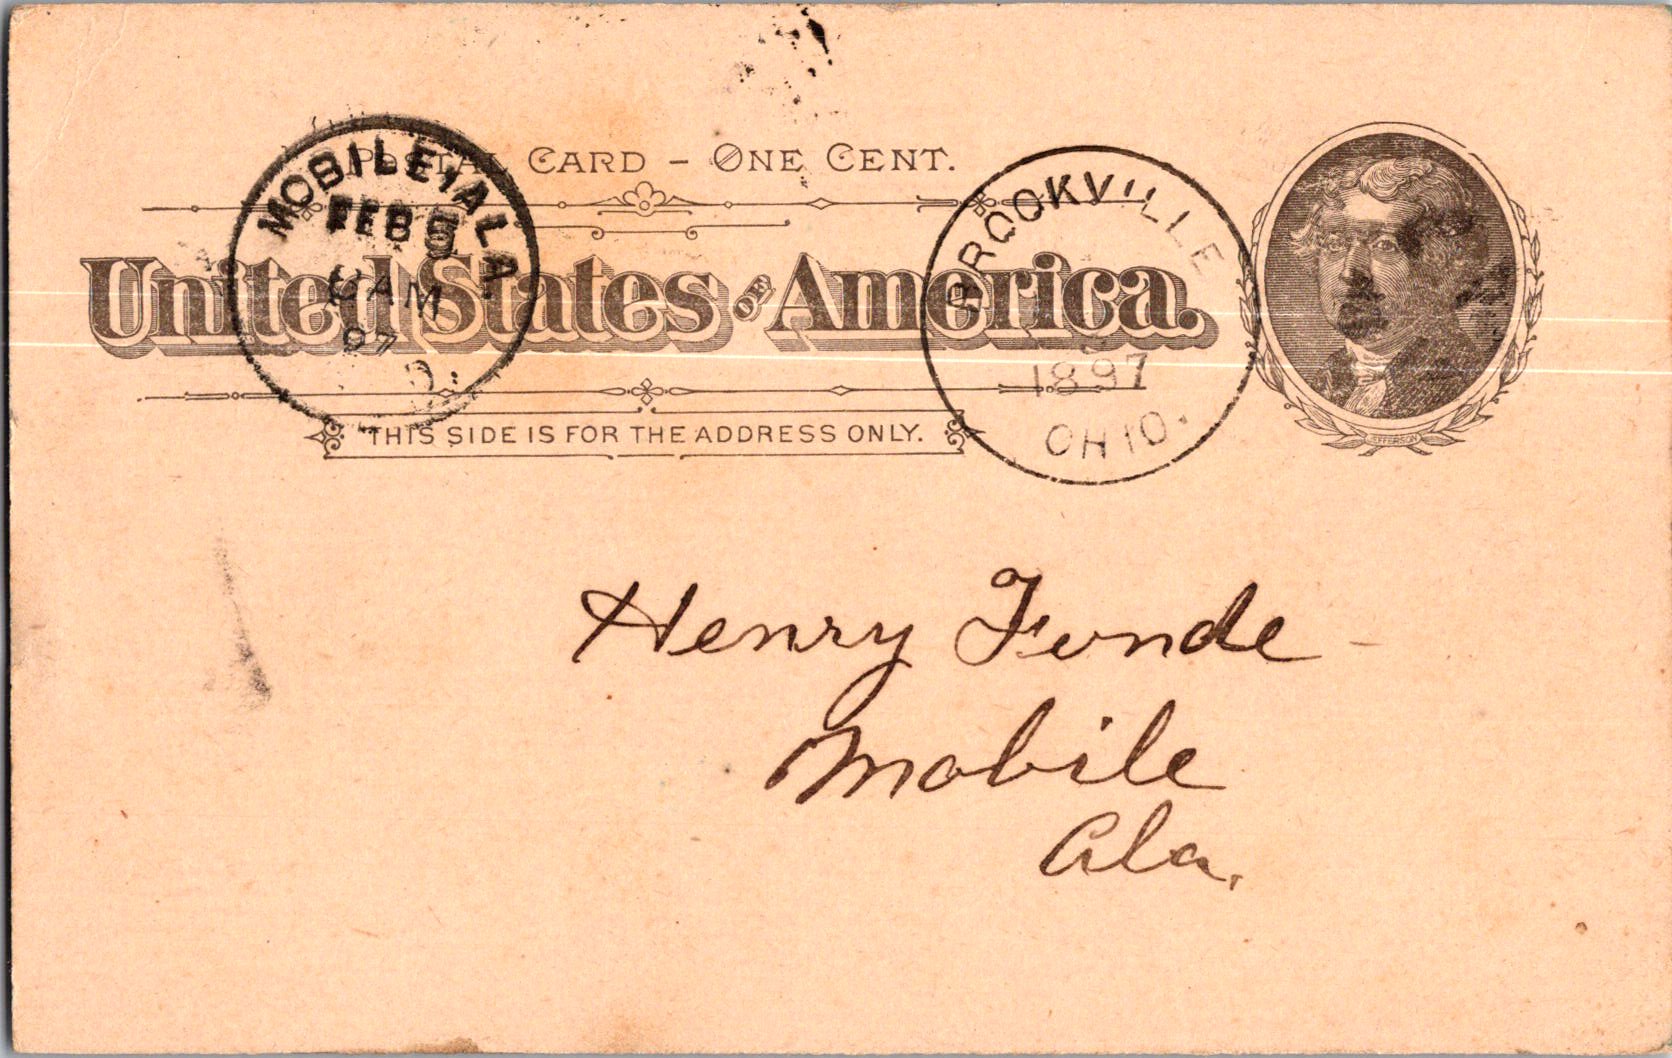 POSTAL CARD - ONE CENT.
United States OF America.
THIS SIDE IS FOR THE ADDRESS ONLY.
MOBILE, ALA
FEB 5
AM
97
BROOKVILLE
1897
OHIO.
JEFFERSON
Henry Fonde
Mobile
Ala.